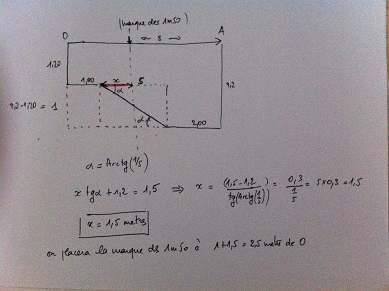 (marque des 1m50)
O
← 8 →
A
1,20
1,00
x
5
α
9,2
9,2-1,20 = 1
α
2,00
α = Arctg(1/5)
x tgα + 1,2 = 1,5 ⇒ x = (1,5-1,2 / tg(Arctg(1/5))) = 0,3 / 1/5 = 5x0,3 = 1,5
x = 1,5 metres
on placera la marque ds 1m50 à 1+1,5 = 2,5 metres de O